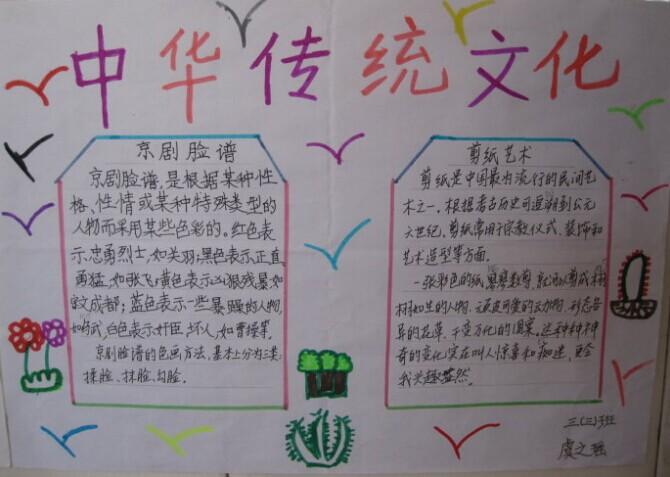 中华传统文化
京剧脸谱
京剧脸谱,是根据某种性
格、性情或某种特殊类型的
人物而采用某些色彩的。红色表
示忠勇烈士,如关羽;黑色表示正直、
勇猛,如张飞;黄色表示凶狠残暴如
宇文成都;蓝色表示一些暴躁的人物,
白色表示奸臣、坏人,如曹操等。
京剧脸谱的色画方法,基本上分为三类:
揉脸、抹脸、勾脸。
剪纸艺术
剪纸是中国最为流行的民间艺
术之一,根据考古历史可追溯到公元
六世纪,剪纸常用于宗教仪式、装饰和
艺术造型等方面。
一张彩色的纸,
如生的人物、顽皮可爱的动物、形态各
异的花草、千变万化的图案。这种种神
奇的变化,实在叫人惊喜和痴迷,更令
我兴趣盎然。
三(三)班
虞之瑶